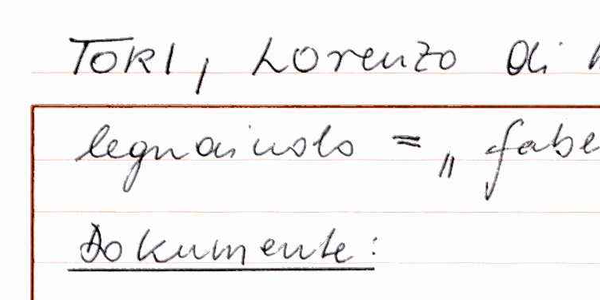 TORI, Lorenzo di
legnaiuolo = „ fabe
Dokumente: